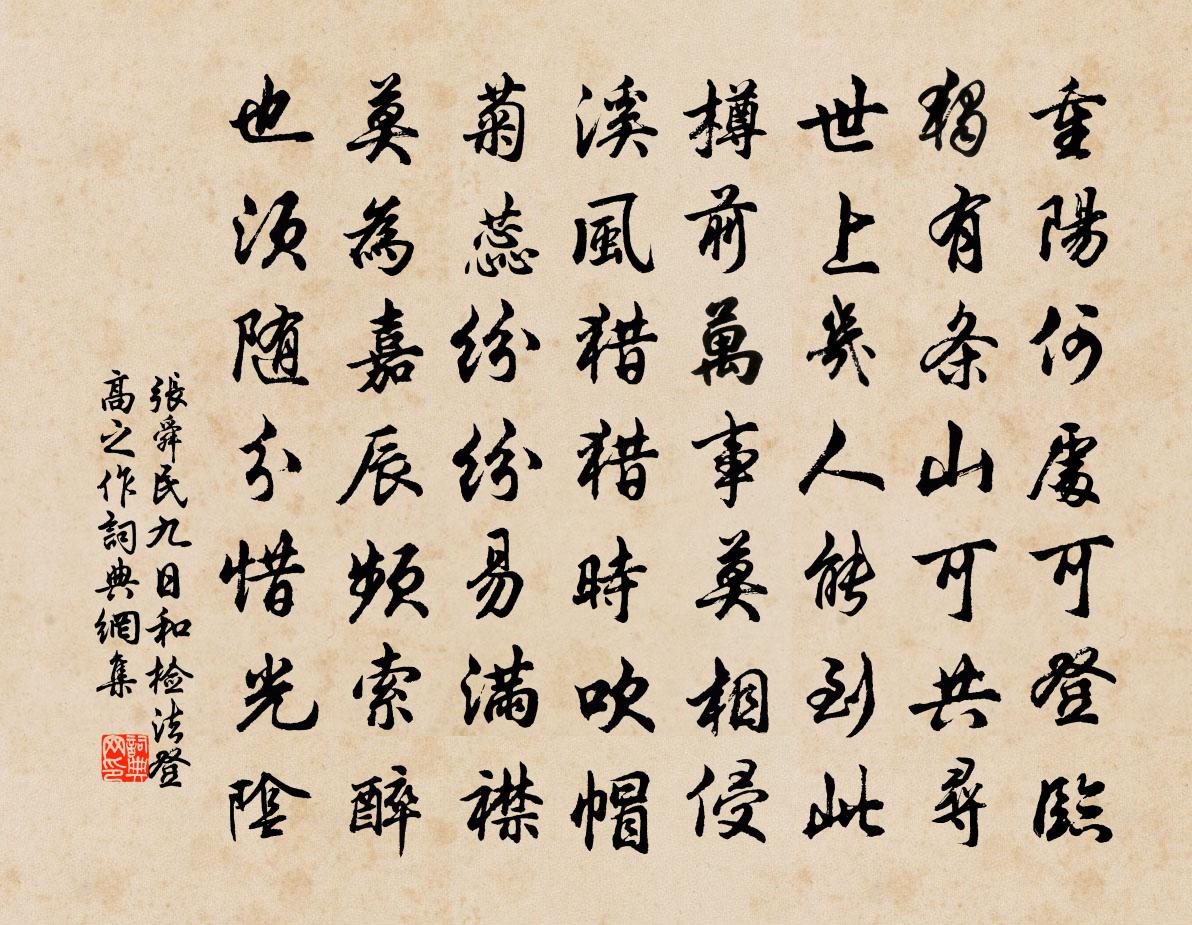 重陽何處可登臨
獨有条山可共尋
世上幾人能到此
樽前萬事莫相侵
溪風猎猎時吹帽
菊蕊紛紛易滿襟
莫為嘉辰頻索醉
也須随分惜光陰
張舜民九日和檢法登
高之作詞典網集
詞典网印